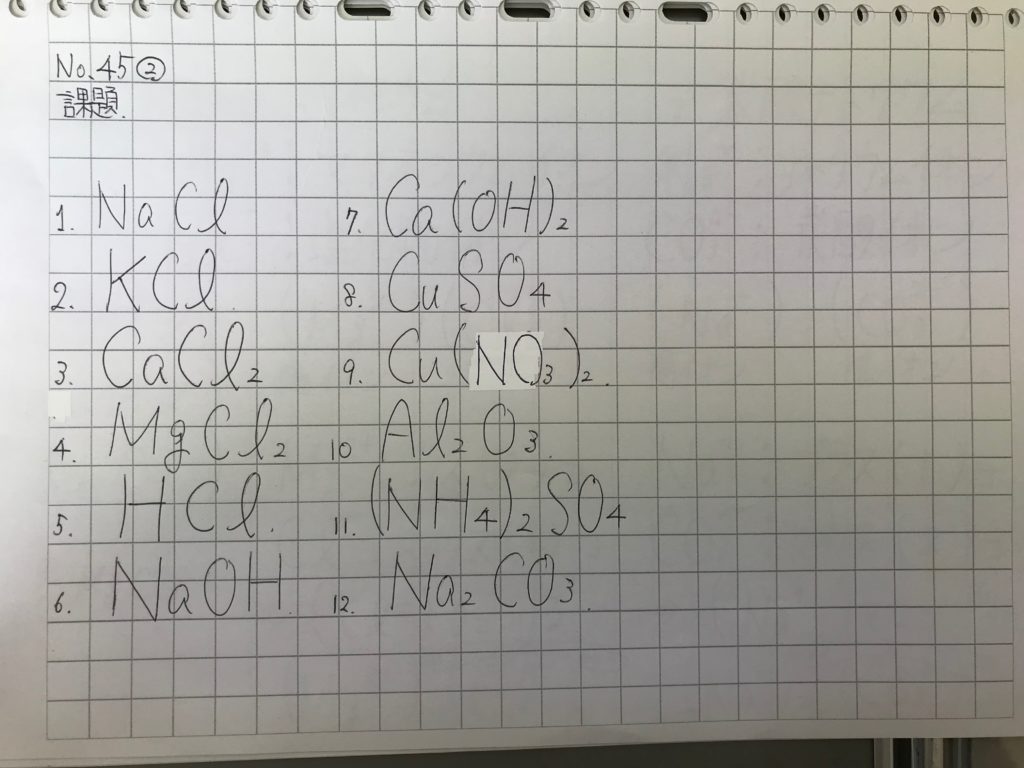 No.45②
課題.
1. NaCl
2. KCl.
3. CaCl₂
4. MgCl₂
5. HCl.
6. NaOH.
7. Ca(OH)₂
8. CuSO₄
9. Cu(NO₃)₂.
10 Al₂O₃.
11. (NH₄)₂SO₄
12. Na₂CO₃.